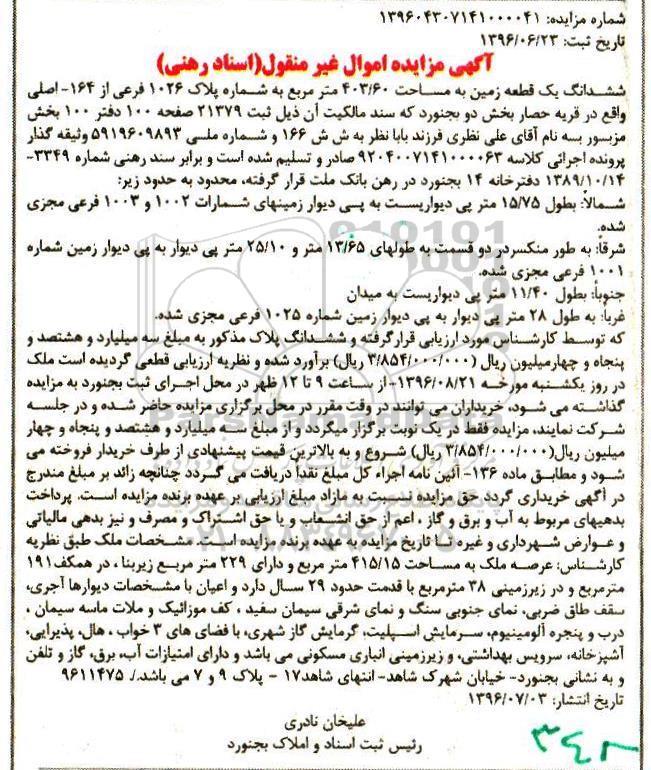 شماره مزایده: ۱۳۹۶۰۴۳۰۷۱۴۱۰۰۰۰۴۱
تاریخ ثبت: ۱۳۹۶/۰۶/۲۳
آگهی مزایده اموال غیر منقول(اسناد رهنی)
ششدانگ یک قطعه زمین به مساحت ۴۰۳/۶۰ متر مربع به شماره پلاک ۱۰۲۶ فرعی از ۱۶۴- اصلی
واقع در قریه حصار بخش دو بجنورد که سند مالکیت آن ذیل ثبت ۲۱۳۷۹ صفحه ۱۰۰ دفتر ۱۰۰ بخش
مزبور به نام آقای علی نظری فرزند بابا نظر به ش ش ۱۶۶ و شماره ملی ۵۹۱۹۶۰۹۸۹۳ وثیقه گذار
پرونده اجرائی کلاسه ۹۲۰۴۰۰۷۱۴۱۰۰۰۰۶۳ صادر و تسلیم شده است و برابر سند رهنی شماره ۳۳۴۹-
۱۳۸۹/۱۰/۱۴ دفترخانه ۱۴ بجنورد در رهن بانک ملت قرار گرفته، محدود به حدود زیر:
شمالاً: بطول ۱۵/۷۵ متر پی دیواریست به پی دیوار زمینهای شمارات ۱۰۰۲ و ۱۰۰۳ فرعی مجزی
شده.
شرقاً: به طور منکسردر دو قسمت به طولهای ۱۳/۶۵ متر و ۲۵/۱۰ متر پی دیوار به پی دیوار زمین شماره
۱۰۰۱ فرعی مجزی شده.
جنوباً: بطول ۱۱/۴۰ متر پی دیواریست به میدان
غربا: به طول ۲۸ متر پی دیوار به پی دیوار زمین شماره ۱۰۲۵ فرعی مجزی شده.
که توسط کارشناس مورد ارزیابی قرارگرفته و ششدانگ پلاک مذکور به مبلغ سه میلیارد و هشتصد و
پنجاه و چهارمیلیون ریال (۳/۸۵۴/۰۰۰/۰۰۰ ریال) برآورد شده و نظریه ارزیابی قطعی گردیده است ملک
در روز یکشنبه مورخه ۱۳۹۶/۰۸/۲۱- از ساعت ۹ تا ۱۲ ظهر در محل اجرای ثبت بجنورد به مزایده
گذاشته می شود، خریداران می توانند در وقت مقرر در محل برگزاری مزایده حاضر شده و در جلسه
شرکت نمایند، مزایده فقط در یک نوبت برگزار میگردد و از مبلغ سه میلیارد و هشتصد و پنجاه و چهار
میلیون ریال(۳/۸۵۴/۰۰۰/۰۰۰ ریال) شروع و به بالاترین قیمت پیشنهادی از طرف خریدار فروخته می
شود و مطابق ماده ۱۳۶- آئین نامه اجراء کل مبلغ نقداً دریافت می گردد چنانچه زائد بر مبلغ مندرج
در آگهی خریداری گردد حق مزایده نسبت به مازاد مبلغ ارزیابی بر عهده برنده مزایده است. پرداخت
بدهیهای مربوط به آب و برق و گاز ، اعم از حق انشعاب و یا حق اشتراک و مصرف و نیز بدهی مالیاتی
و عوارض شهرداری و غیره تا تاریخ مزایده به عهده برنده مزایده است. مشخصات ملک طبق نظریه
کارشناس: عرصه ملک به مساحت ۴۱۵/۱۵ متر مربع و دارای ۲۲۹ متر مربع زیربنا ، در همکف۱۹۱
مترمربع و در زیرزمینی ۳۸ مترمربع با قدمت حدود ۲۹ سال دارد و اعیان با مشخصات دیوارها آجری،
سقف طاق ضربی، نمای جنوبی سنگ و نمای شرقی سیمان سفید ، کف موزائیک و ملات ماسه سیمان ،
درب و پنجره آلومینیوم، سرمایش اسپلیت، گرمایش گاز شهری، با فضای های ۳ خواب ، هال، پذیرایی،
آشپزخانه، سرویس بهداشتی، و زیرزمینی انباری مسکونی می باشد و دارای امتیازات آب، برق، گاز و تلفن
و به نشانی بجنورد- خیابان شهرک شاهد- انتهای شاهد۱۷ - پلاک ۹ و ۷ می باشد./. ۹۶۱۱۴۷۵
تاریخ انتشار: ۱۳۹۶/۰۷/۰۳
علیخان نادری
رئیس ثبت اسناد و املاک بجنورد